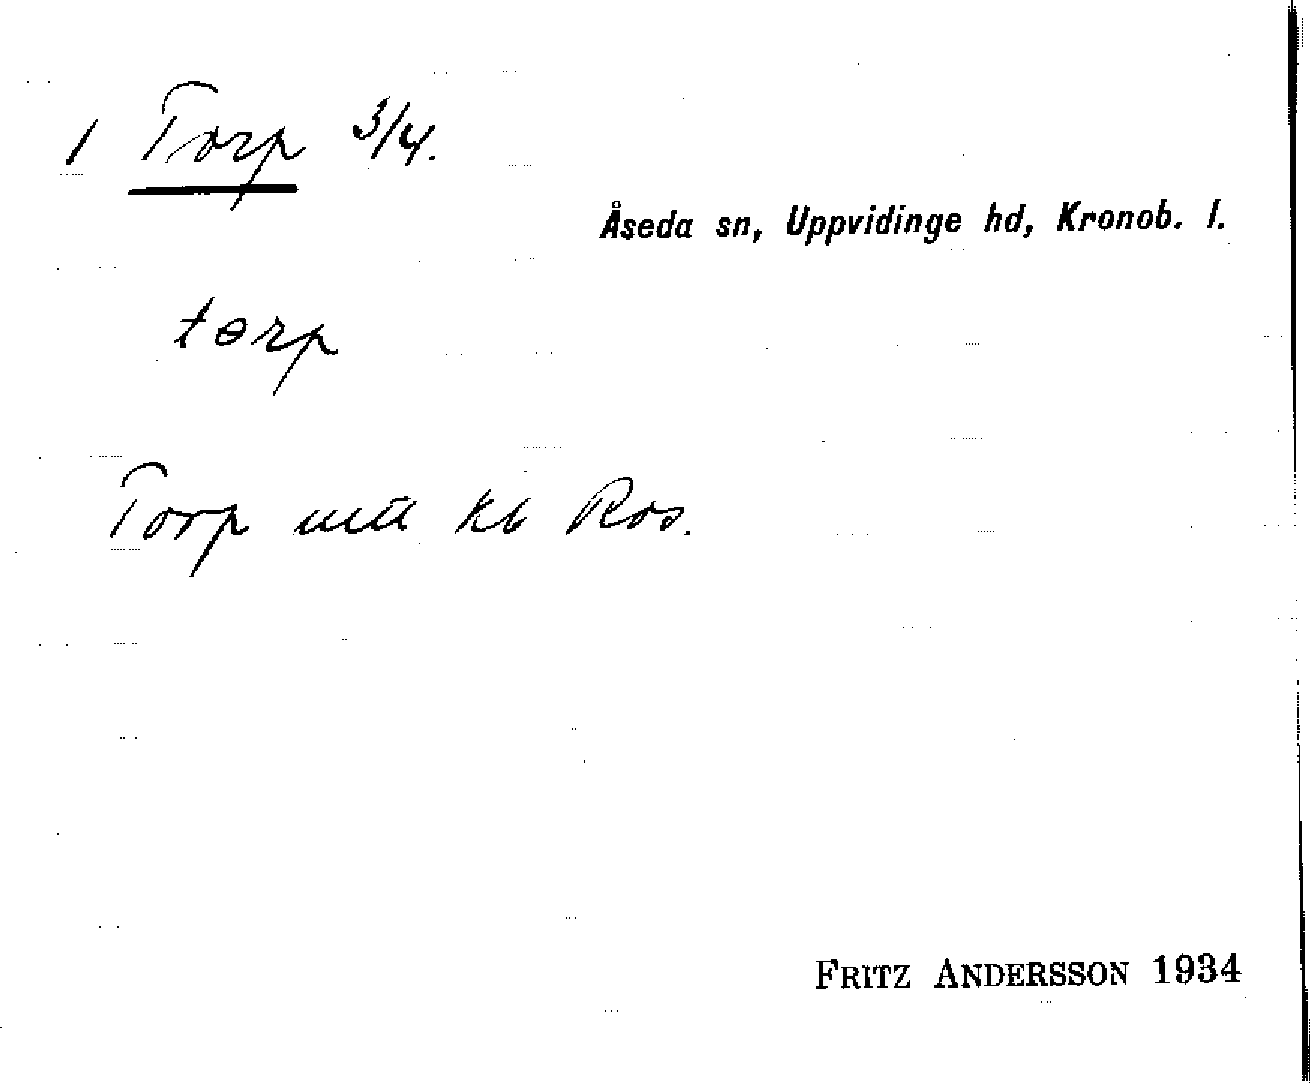 1 Torp 3/4.
Åseda sn, Uppvidinge hd, Kronob. l.
tɵrp
Torp Kb Ros.
FRITZ ANDERSSON 1934